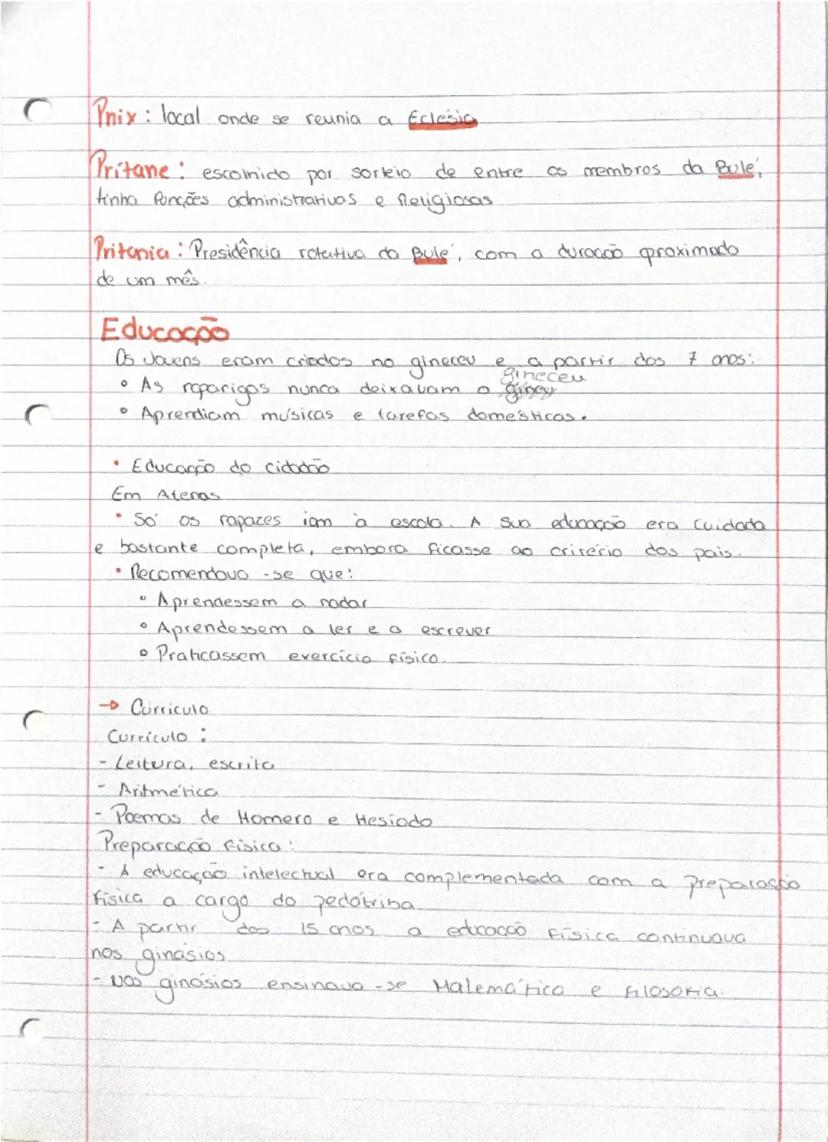 Pnix: local onde se reunia a Eclésia
Prítane: escolhido por sorteio de entre os membros da Bulé,
tinha funções administrativas e Religiosas
Pritania: Presidência rotativa da Bulé, com a duração aproximada
de um mês.
Educação
Os Jovens eram criados no gineceu e a partir dos 7 anos:
° As raparigas nunca deixavam o gineceu
° Aprendiam músicas e tarefas domésticas.
• Educação do cidadão
Em Atenas
• Só os rapazes iam à escola. A sua educação era cuidada
e bastante completa, embora ficasse ao critério dos pais.
• Recomendava-se que:
° Aprendessem a nadar
° Aprendessem a ler e a escrever
° Praticassem exercício físico.
→ Currículo
Currículo:
- Leitura, escrita
- Aritmética
- Poemas de Homero e Hesíodo
Preparação física:
- A educação intelectual era complementada com a preparação
física a cargo do pedótriba
- A partir dos 15 anos a educação física continuava
nos ginásios
- Nos ginásios ensinava-se Matemática e filosofia.